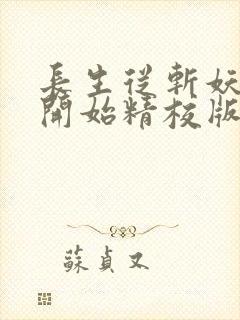 長生從斬妖
開始精校版
蘇貞又